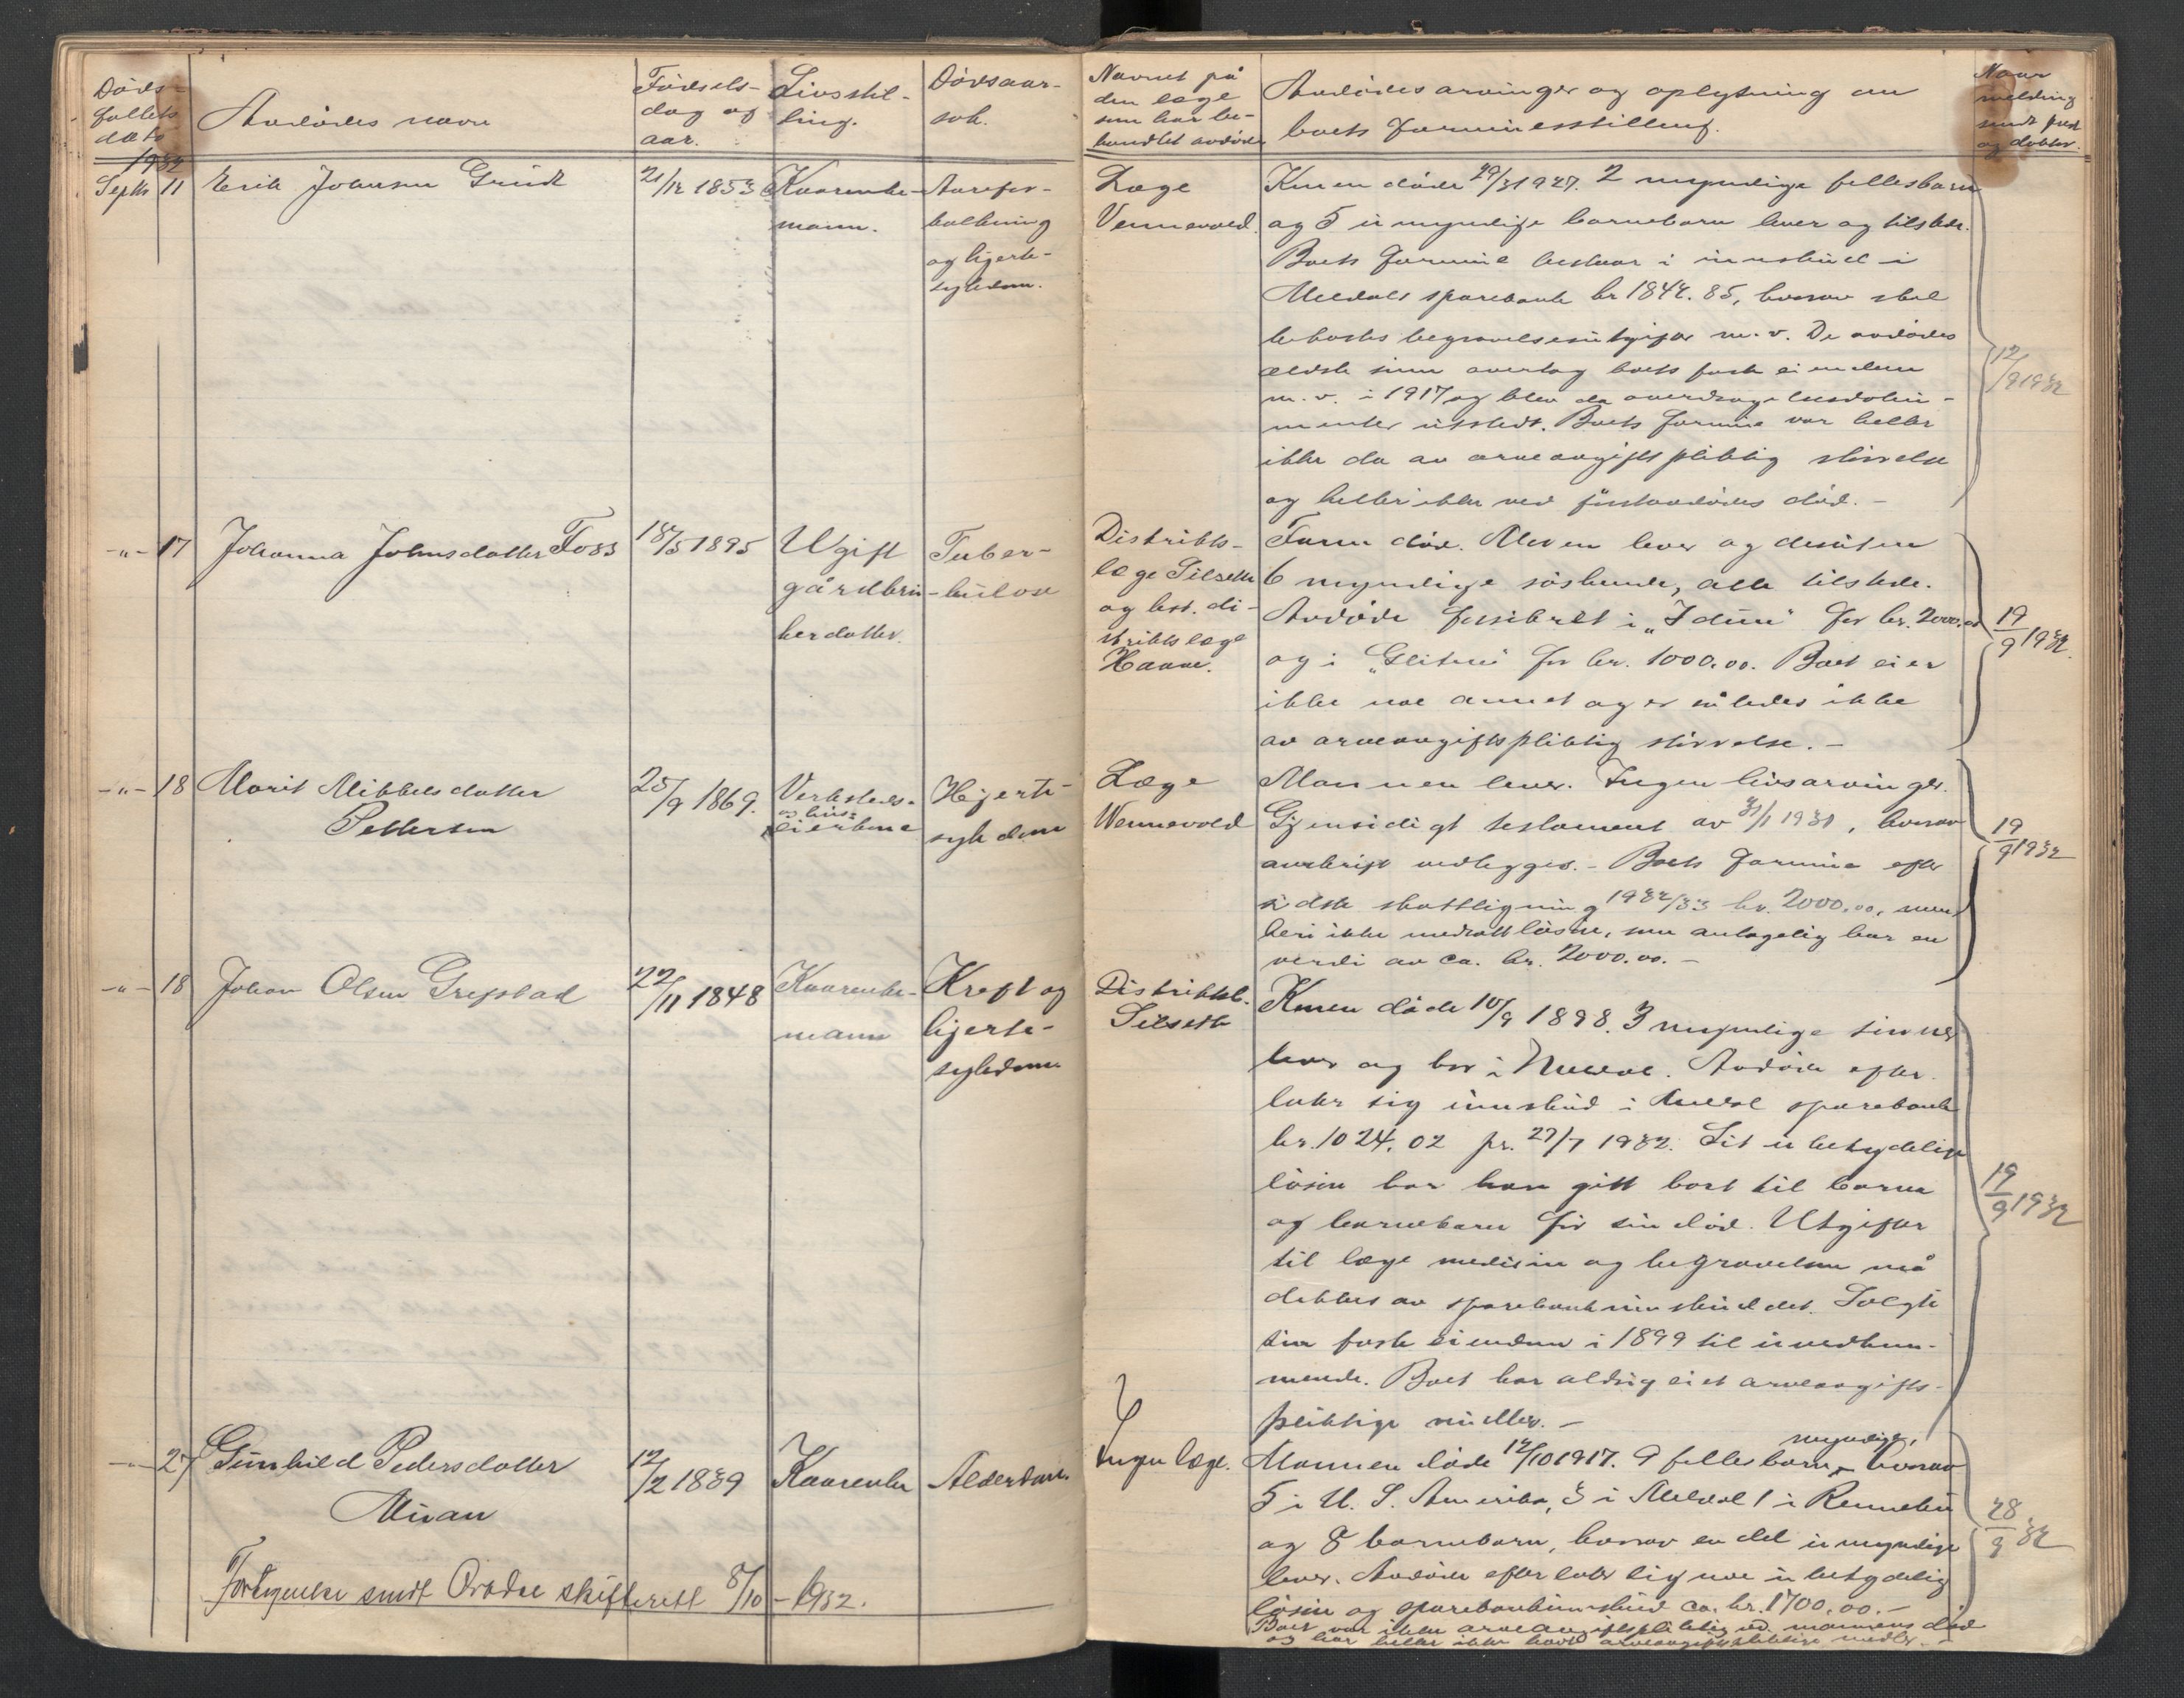 Døds-
fallets
dato
Avdødes navn
Fødsels-
dag og
aar.
Livsstil-
ling.
Dødsaar-
sak.
Navnet på
den læge
som har be-
handlet avdøde
Avdødes arvinger og oplysning om
boets formuesstilling.
Naar
melding
sendt
og doktor.
1932
Septr 11
Erik Johnsen
21/12 1853
Kaarenke-
mann.
Aarefor-
kalkning
og hjerte-
sykdom.
Læge
Vennevold.
Konen døde 29/3 1927. 2 myndige fellesbarn
og 5 umyndige barnebarn lever og tilstede.
Boets formue bestaar i innskud i
Meldals sparebank kr 1842.85, hvorav skal
bekostes begravelsesutgifter m.v. De avdødes
ældste sønn overtog boets faste eiendom
m.v. i 1917 og blev da overdragelsesdoku-
menter utstedt. Boets formue var heller
ikke da av arveavgiftspliktig størrelse
og heller ikke ved førstavdødes død. -
12/9 1932
-"- 17
Johanna Johnsdatter Foss
18/5 1895
Ugift
gårdbru-
kerdatter.
Tuber-
kulose
Distrikts-
læge Silseth
og kst. di-
striktslæge
Faren død. Moren lever og desuten
6 myndige søskende, alle tilstede.
Avdøde forsikret i "Idun" for kr. 2000.00
og i "Glitne" for kr. 1000.00. Boet eier
ikke noe annet og er således ikke
av arveavgiftspliktig størrelse. -
19/9 1932.
-"- 18
Marit Mikkelsdatter
Pettersen
25/9 1869.
Verksteds-
og hus-
eierkone
Hjerte-
sykdom
Læge
Vennevold
Mannen lever. Ingen livsarvinger.
Gjensidigt testament av 31/1 1931, hvorav
avskrift vedlegges. - Boets formue efter
sidste skattligning 1932/33 kr. 2000.00, men
heri ikke medtatt løsøre, som antagelig har en
verdi av ca. kr. 2000.00. -
19/9 1932
-"- 18
Johan Olsen Grefstad
22/11 1848
Kaarenke-
mann
Kreft og
hjerte-
sykdom
Distriktsl.
Silseth
Konen døde 10/9 1898. 3 myndige sønner
lever og bor i Meldal. Avdøde efter-
later sig innskud i Meldal sparebank
kr. 1024.02 pr. 27/7 1932. Sit ubetydelige
løsøre har han gitt bort til barna
og barnebarn før sin død. Utgifter
til læge medisin og begravelsen må
dekkes av sparebankinnskuddet. Solgte
sin faste eiendom i 1899 til uvedkom-
mende. Boet har aldrig eiet arveavgifts-
pliktige midler. -
19/9 1932
-"- 27
Gunhild Pedersdatter
Moan
12/2 1839
Kaarenke
Alderdom.
Ingen læge.
Mannen døde 12/10 1917. 9 felles barn, myndige, hvorav
5 i U. S. Amerika, 3 i Meldal 1 i Rennebu
og 8 barnebarn, hvorav en del umyndige
lever. Avdøde efterlot sig noe ubetydelig
løsøre og sparebankinnskud ca. kr. 1700.00. -
Boet var ikke arveavgiftspliktig ved mannens død
og har heller ikke havd arveavgiftspliktige midler. -
28/9 32
Fortegnelse sendt Orkdal skifterett 8/10 - 1932.